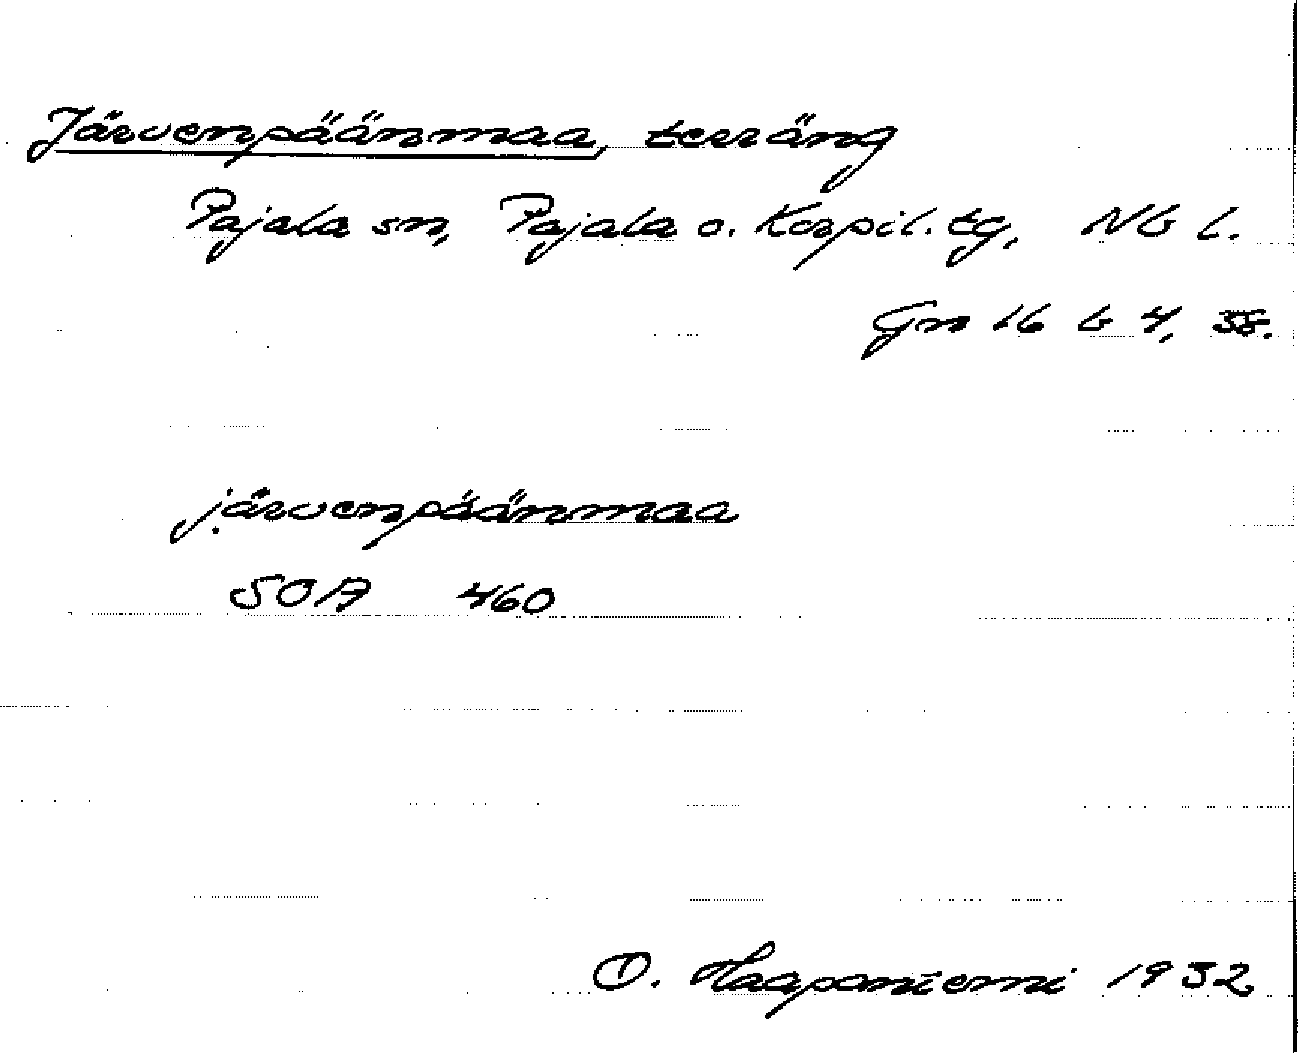 Järvenpäänmaa, terräng
Pajala sn, Pajala o. Korpil. tg, Nb l.
Gm 16 b 4,
järvenpäänmaa
SOA 460
O. Haapaniemi 1932